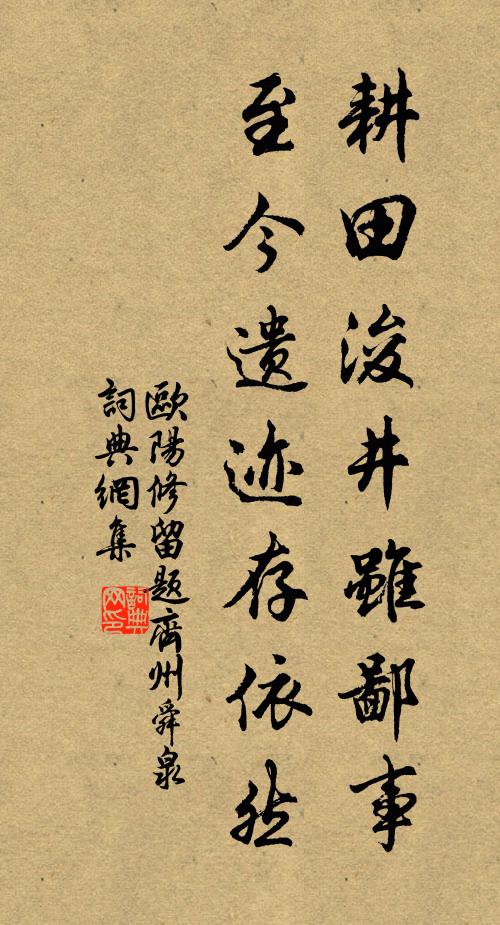 耕田浚井雖鄙事
至今遺迹存依然
歐陽修留題齊州舜泉
詞典網集
詞典网印